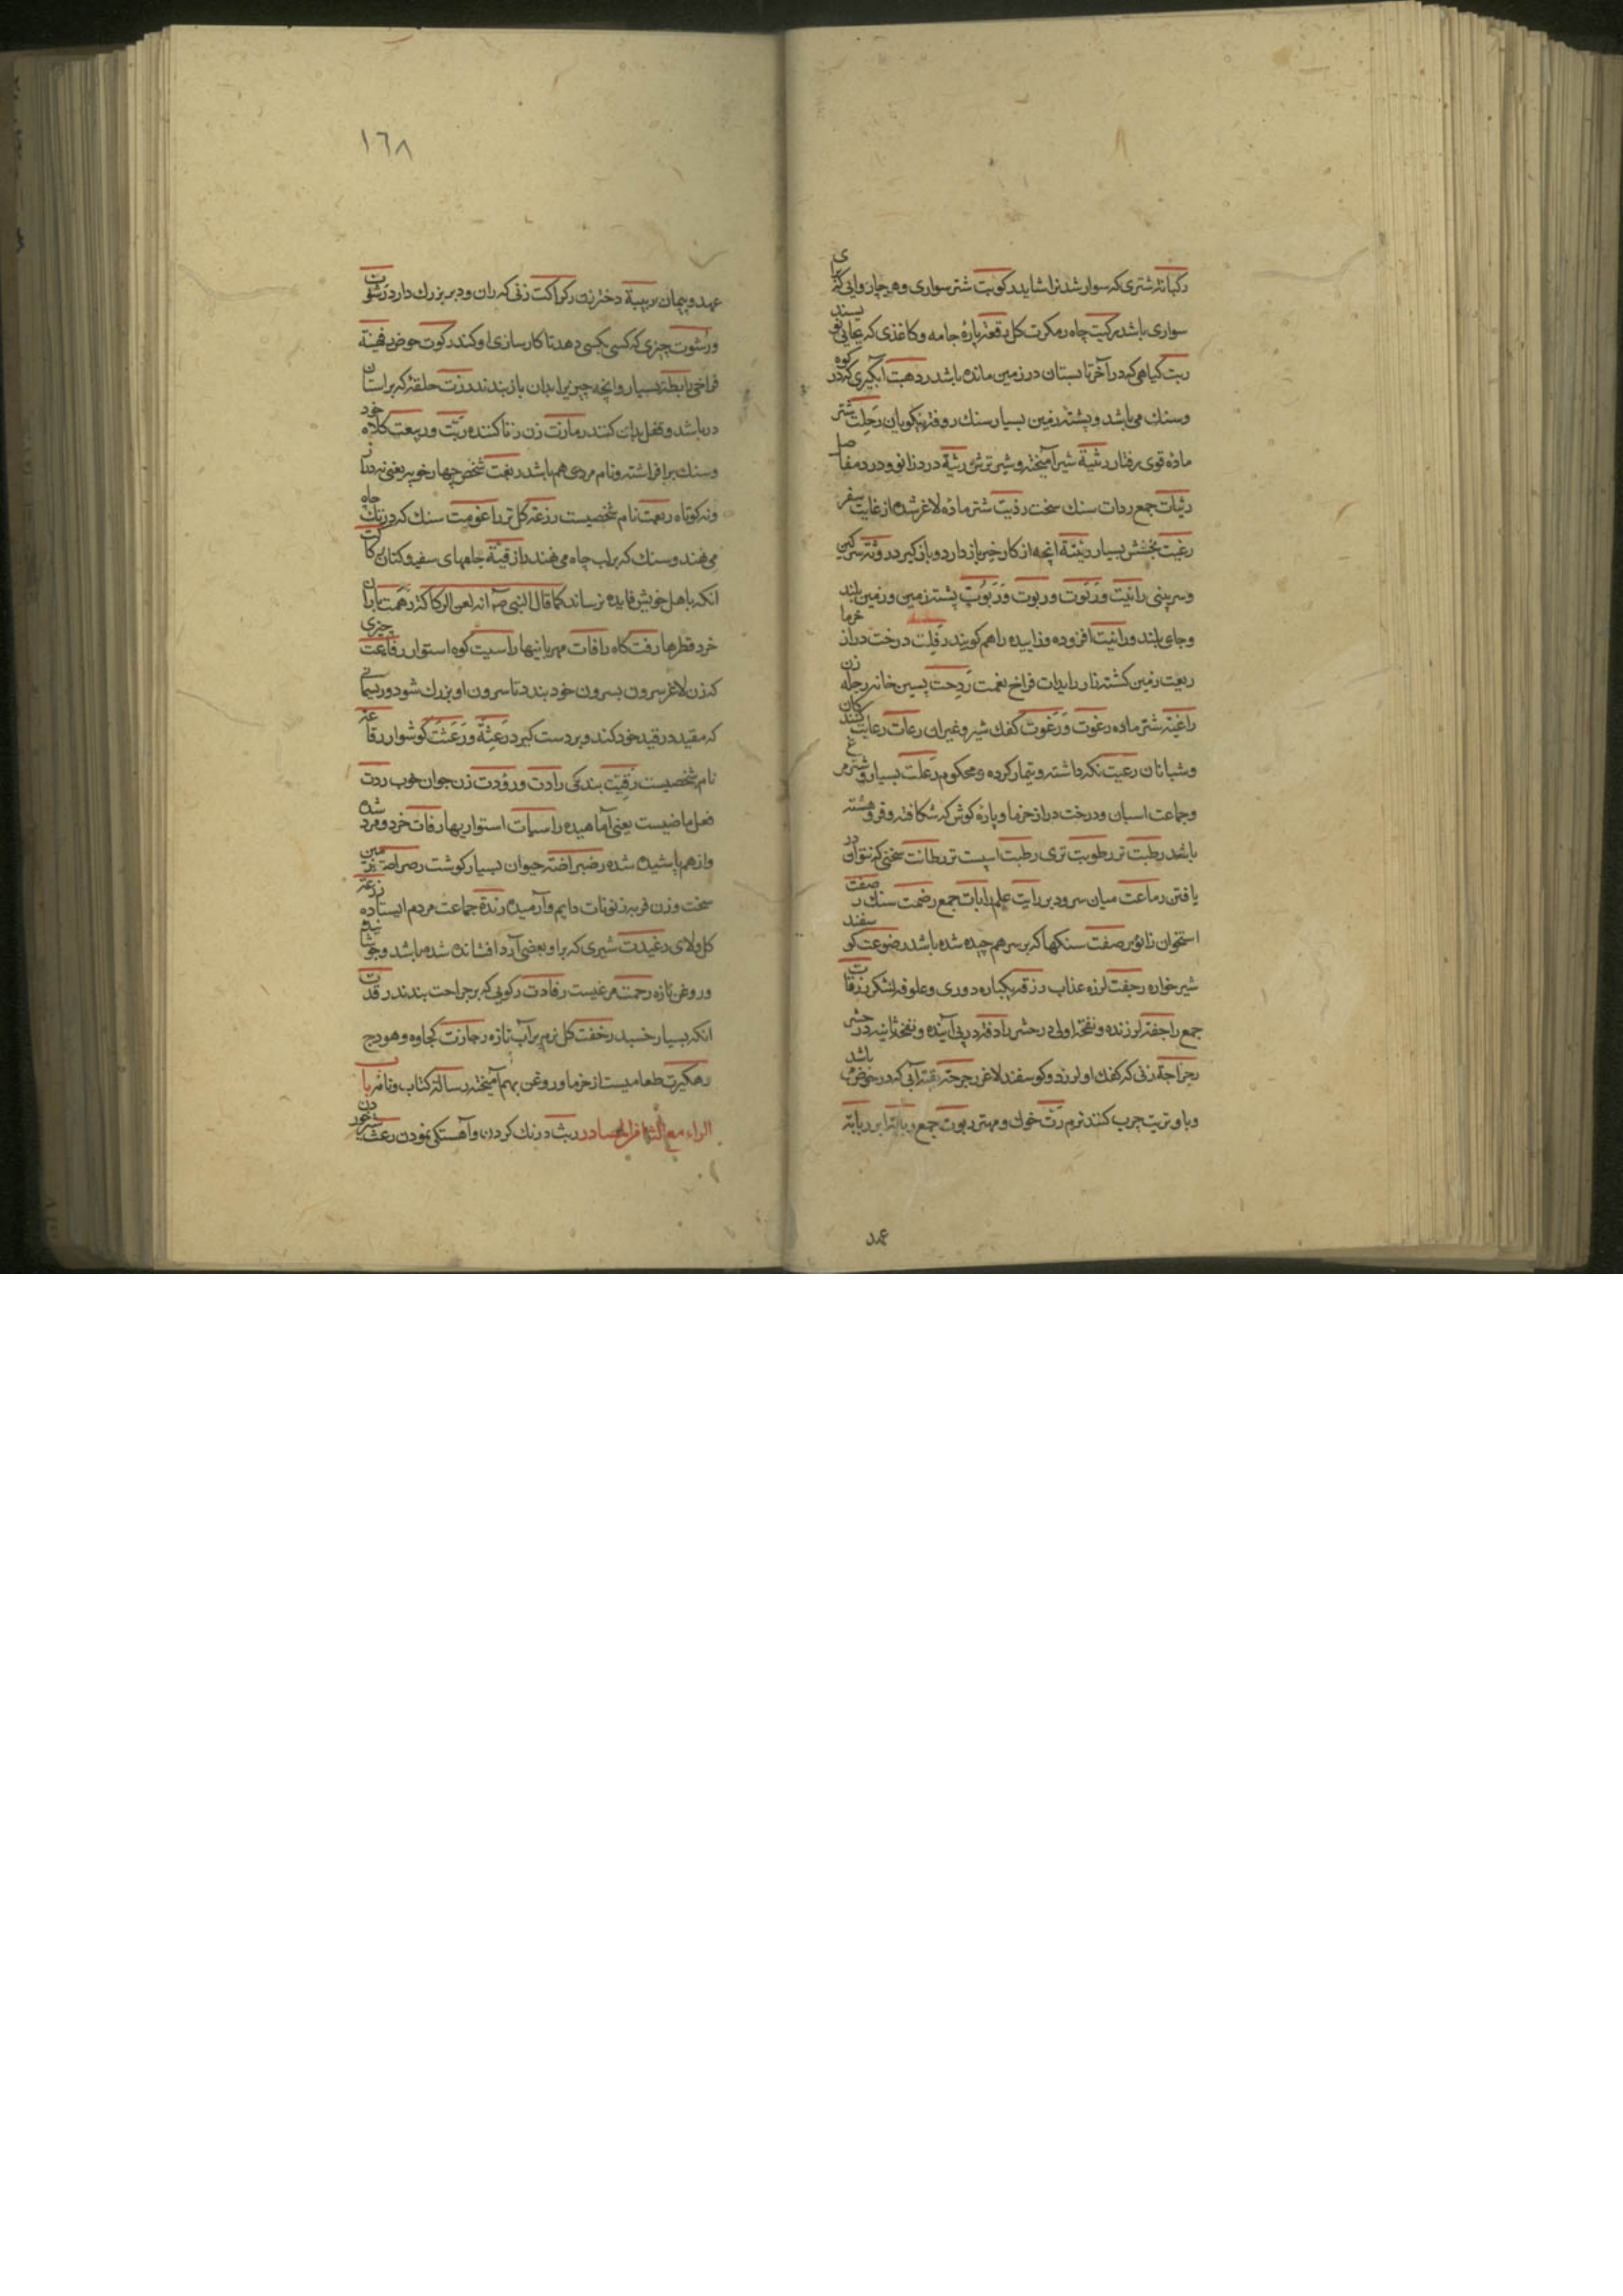 رکبانة شتری که سوار شدنرا شاید رکوبت شتر سواری و هر چاروایی که برای
سواری باشد رکیت چاه رمکرت کل رقعة پارۀ جامه و کاغذی که بجایی نویسند
ربت کیاهی که در آخر تابستان در زمین مانده باشد ردهت آبگیری که در کوه
و سنك می باشد و پشته زمین بسیار سنك روقة نیکویان رحلت شتر
مادۀ قوی رفتار رثیة شیر آمیخته و شیر ترش رثیة درد زانو و درد مفاصل
رثیات جمع ردات سنك سخت رذیت شتر مادۀ لاغر شده از غایت سفر
رغبت بخشش بسیار رثیثة انچه از کار خیر باز دارد و باز گیرد روثة سرکین
و سر بینی رابیت و رَبوَت و ربوت و رَبُوَت پشته زمین و زمین بلند
و جای بلند و رابیت افزوده و زاییده را هم کویند رَقِلت درخت دراز خرما
ربعت زمین کشته زار رابدات فراخ نعمت رَدِحت پسین خانه رجلة زن
راغیة شتر ماده رغوت و رَغوت کفك شیر و غیران رعات رعایت کنندکان
و شبانان رعیت نکه داشته و تیمار کرده و محکوم رَعلت بسیار و شترمرغ
و جماعت اسبان و درخت دراز خرما و پارۀ کوش که شکافته و فرو هشته
باشد رطبت تر رطوبت تری رطبت اسپست تر رطانت سخنی که نتوان در
یافتن رماعت میان سرودبر رایت علم رایات جمع رضمت سنك رصفت
استخوان زانو رصفت سنکها که بر سر هم چیده شده باشد رضوعت کوسفند
شیر خواره رجفت لرزه عذاب رزقة یکباره دوری و علوفه لشکر رزقات
جمع راجفة لرزنده و نفخۀ اولی در حشر رادفة در پی آینده و نفخۀ ثانیه در حشر
رجراجة زنی که کفك او لرزد و کوسفند لاغر رجرجة بقیة آبی که در حوض باشد
و با و تریت چرب کنند نرم رَت خوك و مهتر ربوت جمع ربابة ابر ربابة
عهد
١٦٨
عهد و پیمان ربیبة دختر زن رکراکت زنی که ران و دبر بزرك دارد رشوت
و رُشوت چیزی که کسی بکسی دهد تا کار سازی او کند رکوت حوض رفهینة
فراخی رابطة بسیار و انچه چیزیرا بدان باز بندند رزت حلقۀ که بر استان
در باشد و قفل بدان کنند رمازت زن زنا کننده ربّت و ربیعت کلاه خود
و سنك برافراشته و نام مردی هم باشد ربعت شخص چهار خو یعنی نه دراز
و نه کوتاه ربعت نام شخصیست رزغة کل تر راغومت سنك که در تك چاه
می نهند و سنك که بر لب چاه می نهند رازقیة جامهای سفید و کتان رکاکت
انکه باهل خویش فایده نرساند کما قال النبی صم انه لعن الرکاکة رهمت باران
خرد قطرها رفت کاه رافات مهربانیها راسیت کوه استوار رفاعت چیزی
که زن لاغر سرون بسرون خود بندد تا سرون او بزرك شود و ریسمانی
که مقید در قید خود کند و بر دست کیرد رَعثَة و رَعَثَت کوشوار رفاعة
نام شخصیست رقیّت بندکی رادت و رؤدت زن جوان خوب ردت
فعل ماضیست یعنی آماهیده راسیات استوار یها رفات خرد و مرد شده
و از هم پاشیده شده رضراضة حیوان بسیار کوشت رصراصة زمین
سخت و زن فربه رنونات دایم و آرمیده رندة جماعت مردم ایستاده رزغة
کل و لای رغیدت شیری که بر او بعضی آرد افشانده شده باشد و جوشانیده
و روغن تازه رحمت مرغیست رفادت رکویی که بر جراحت بندند رقدت
انکه بسیار خسبد رخفت کل نرم پر آب تازه رجازت کجاوه و هودج
رهکیرت طعامیست از خرما و روغن بهم آمیخته رسالة کتاب و نامه باب
الراء مع الثاء فی المصادر ربث درنك کردن و آهستکی نمودن رعث شیر خوردن